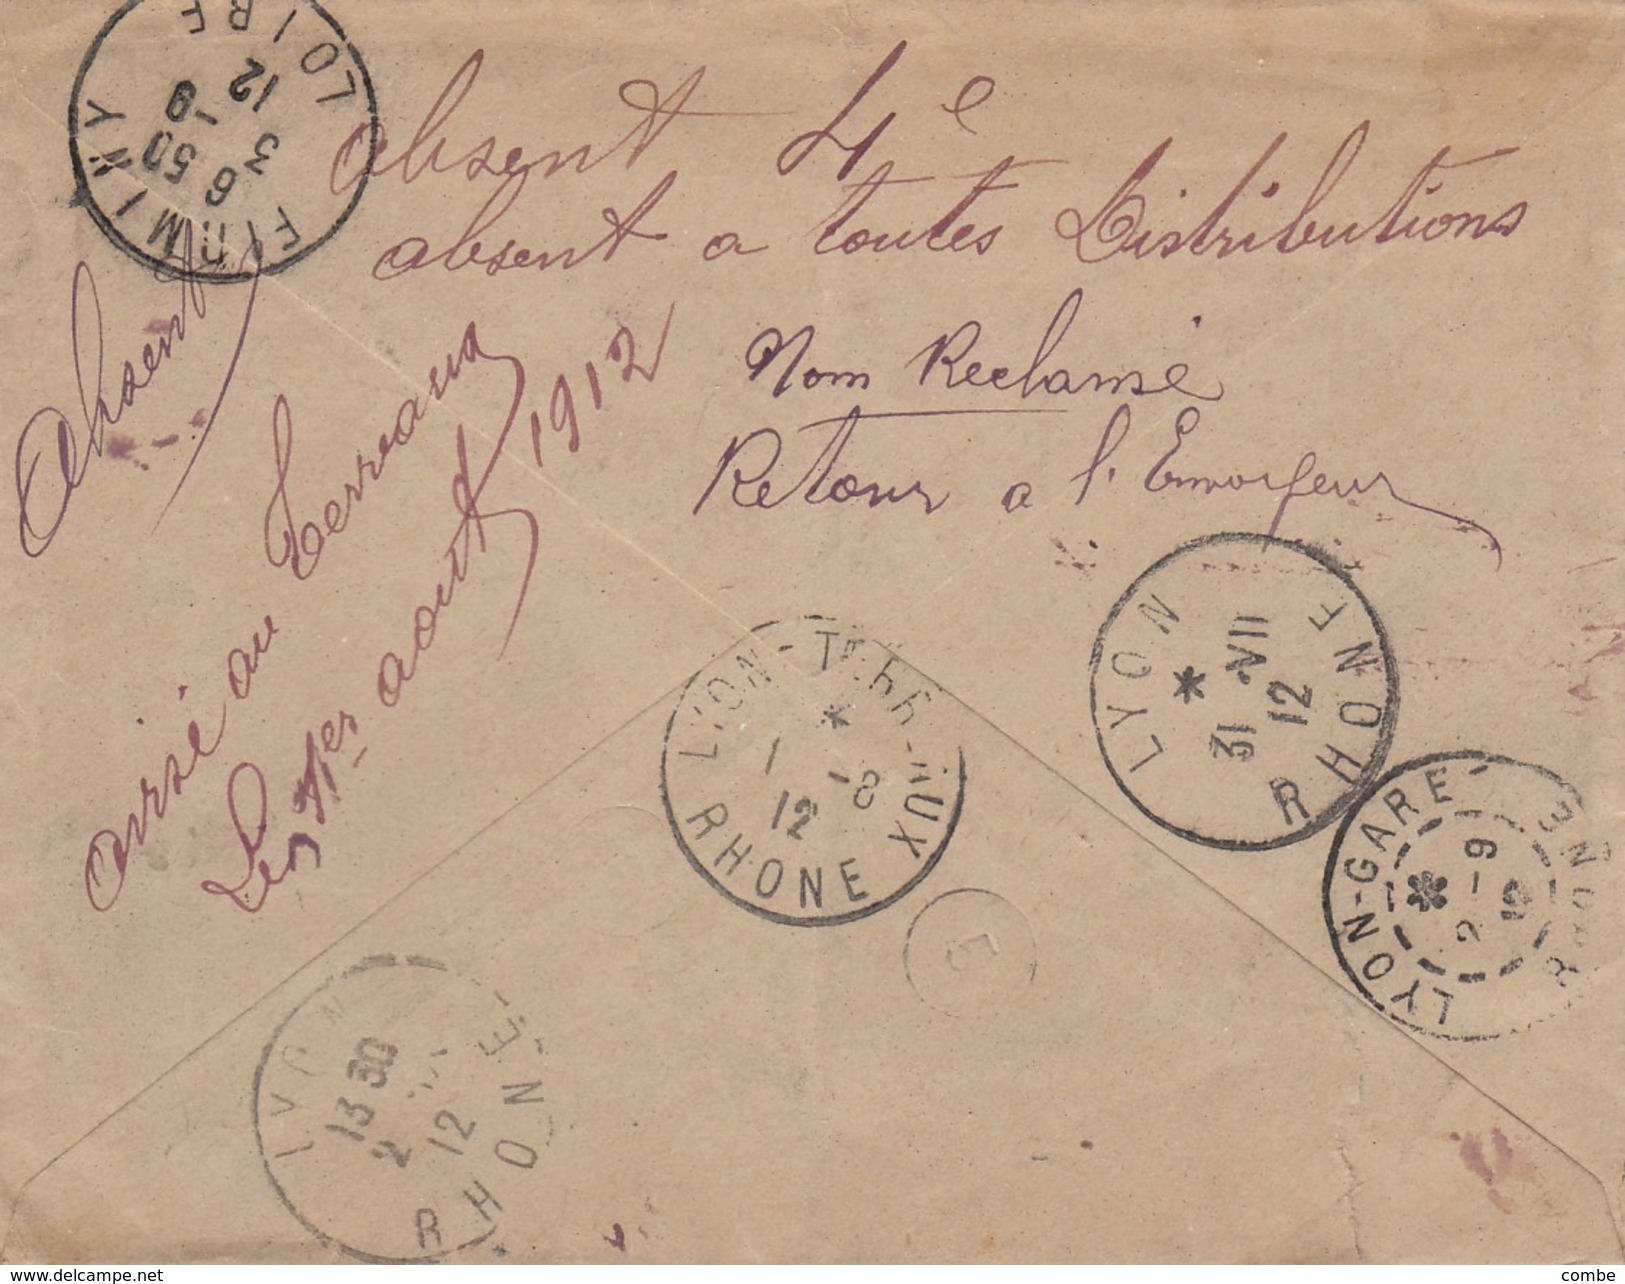 FIRMINY
6 50
3 -9
12
LOIRE
absent 4e
absent a toutes Distributions
Absent
avisé au Terreaux
Les 1er aout 1912
Nom Reclamé
Retour a l'Envoyeur
LYON
*
31 VII
12
RHONE
LYON-TERREAUX
*
1 -8
12
RHONE
LYON-GARE
2 -9
12
RHONE
5
LYON
13 30
2
12
RHONE
www.delcampe.net
combe